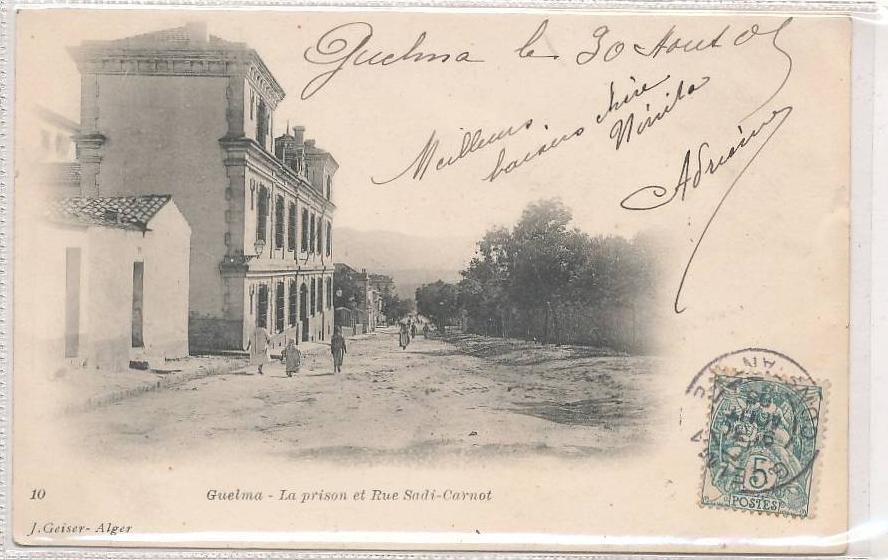 Guelma le 30 Aout
Meilleurs
baisers chère
Ninita
Adrienne
5
POSTES
10
Guelma - La prison et Rue Sadi-Carnot
J. Geiser - Alger